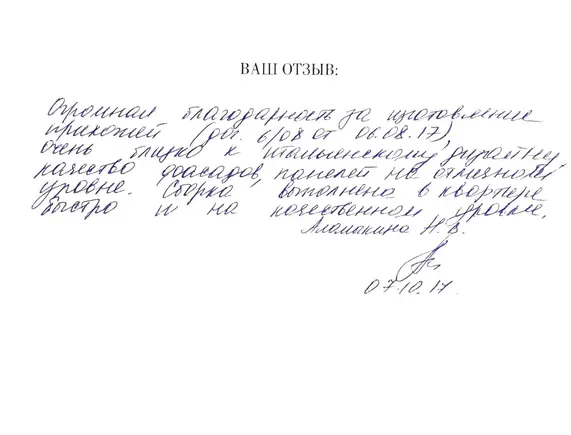 ВАШ ОТЗЫВ:
Огромная благодарность за изготовление
прихожей (дог. 6/08 от 06.08.17)
очень близко к итальянскому дизайну,
качество фасадов, панелей на отличном
уровне. Сборка выполнена в квартире
быстро и на качественном уровне.
Аламакина Н. В.
07.10.17.